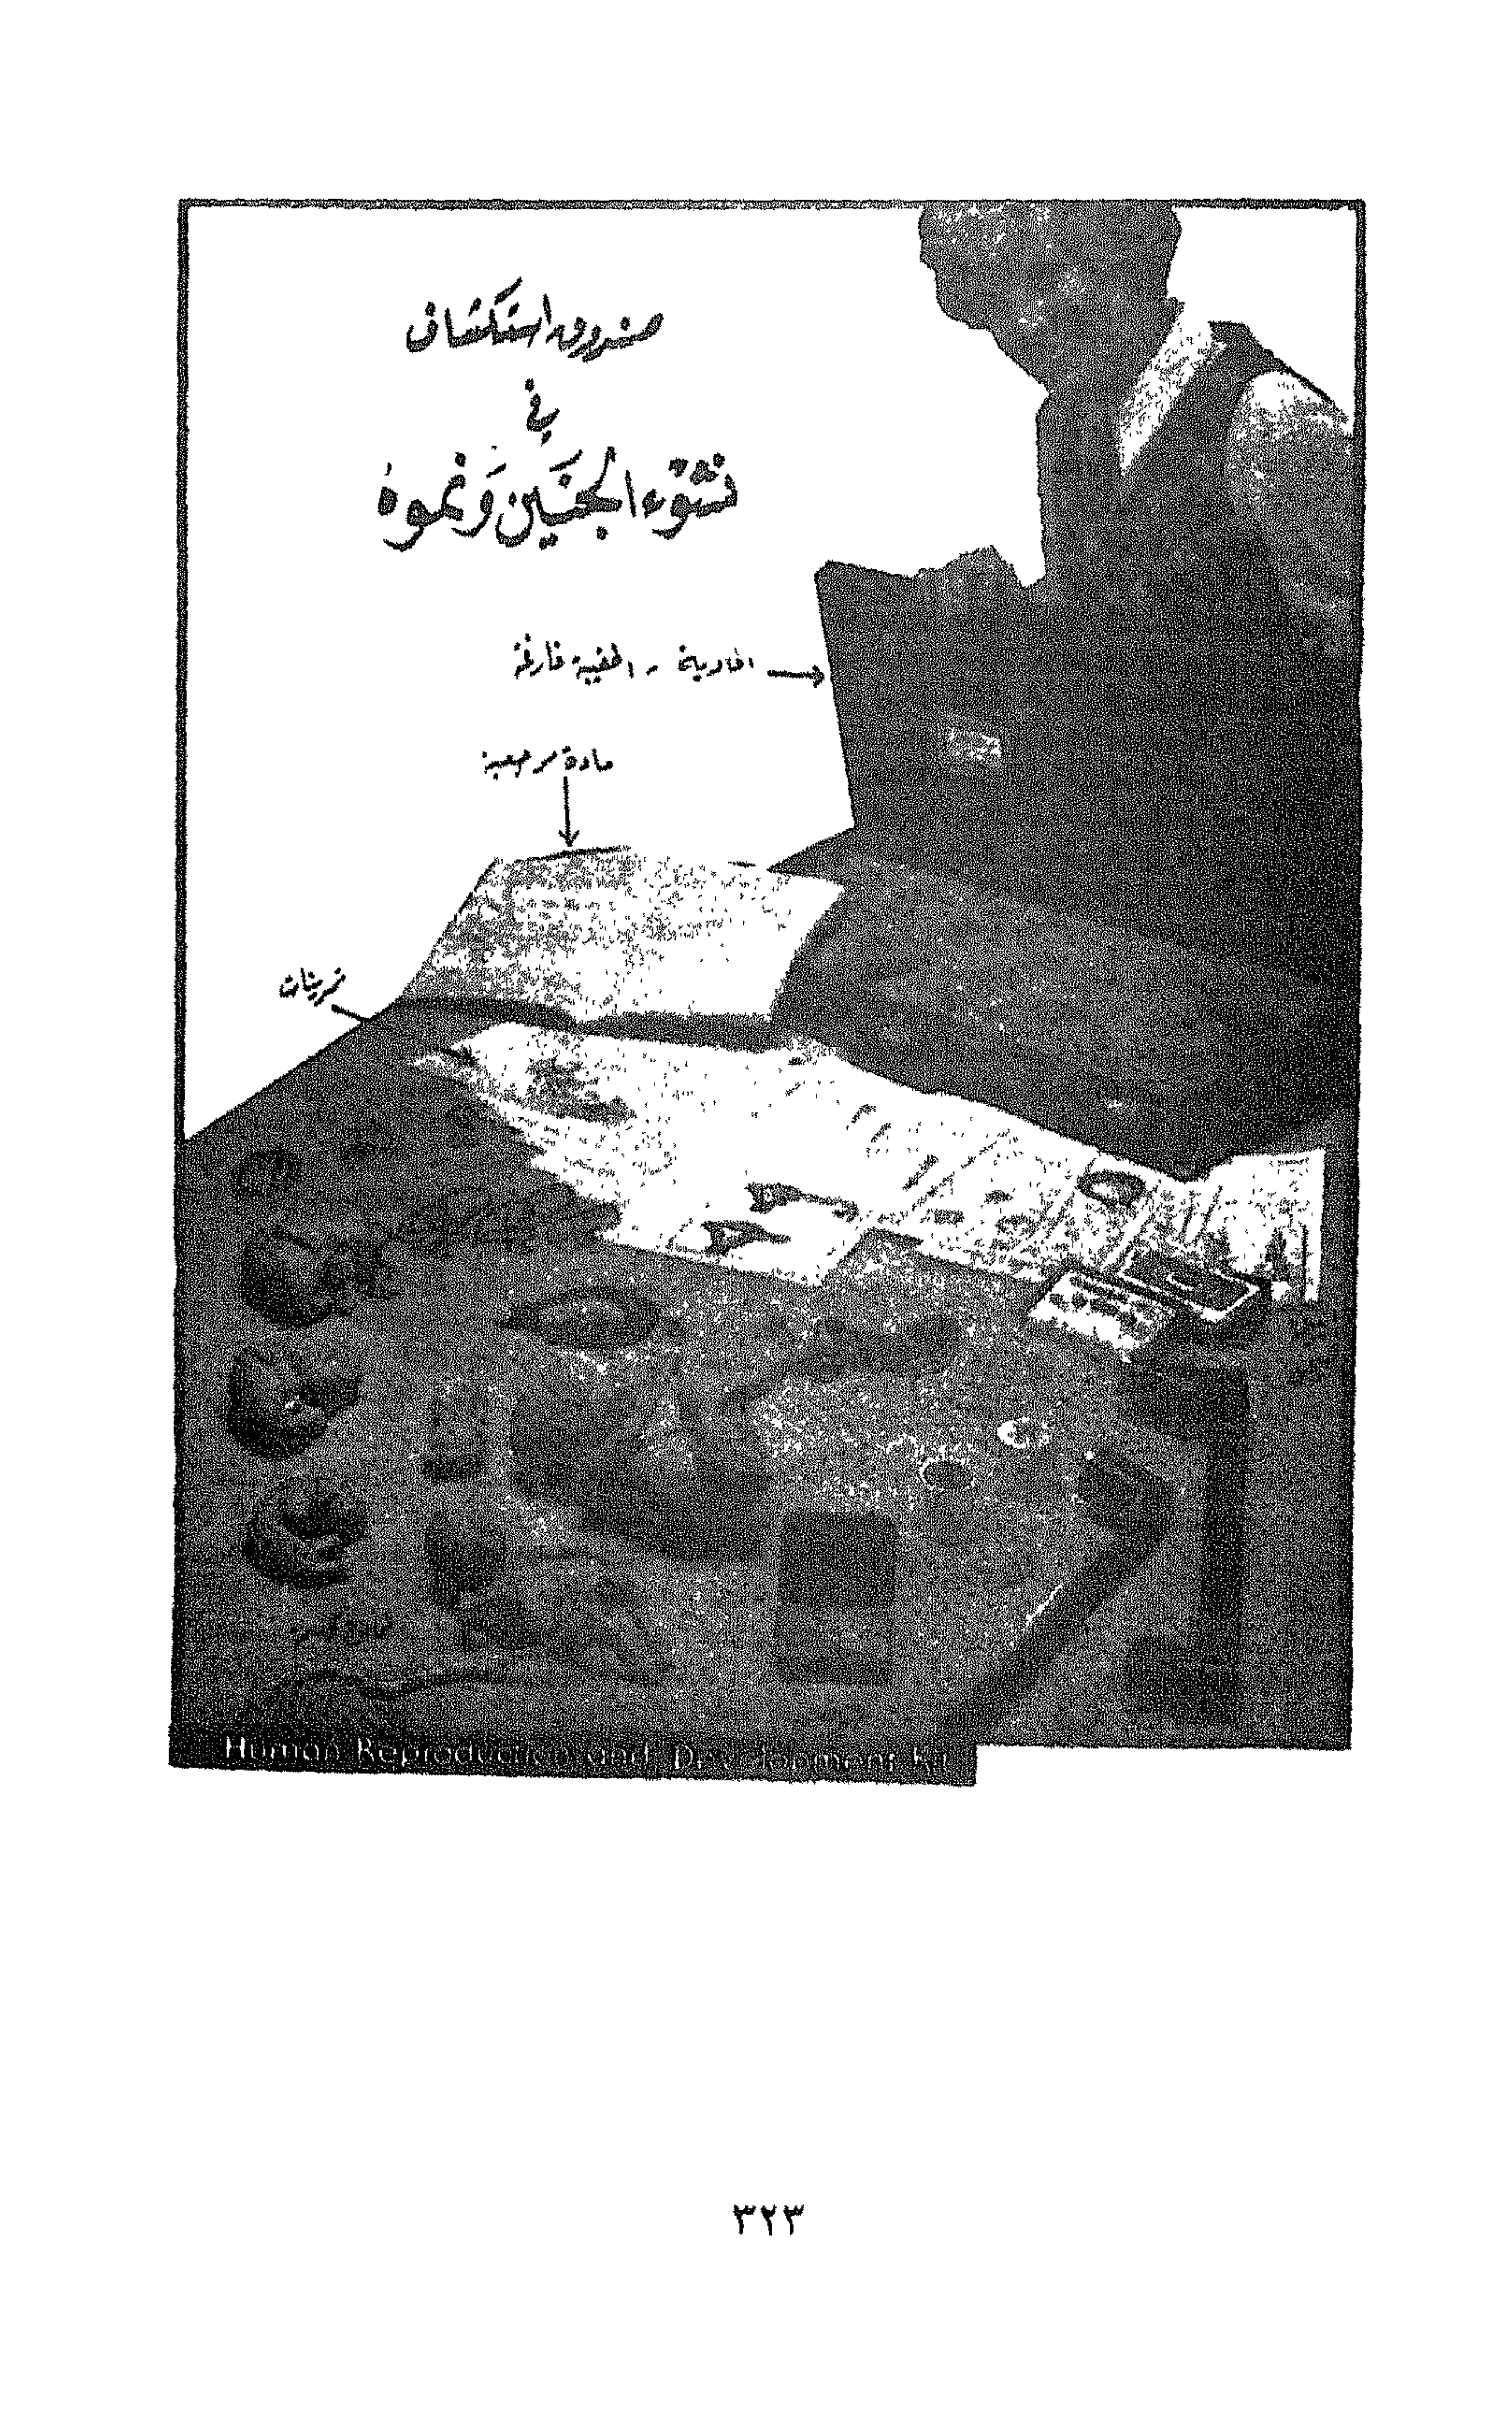 صندوق استكشاف
في
نشوء الجنين ونموه
الحاوية - الحقيبة فارغة
مادة مرجعية
تمرينات
Human Reproduction and Development Kit
٣٢٣